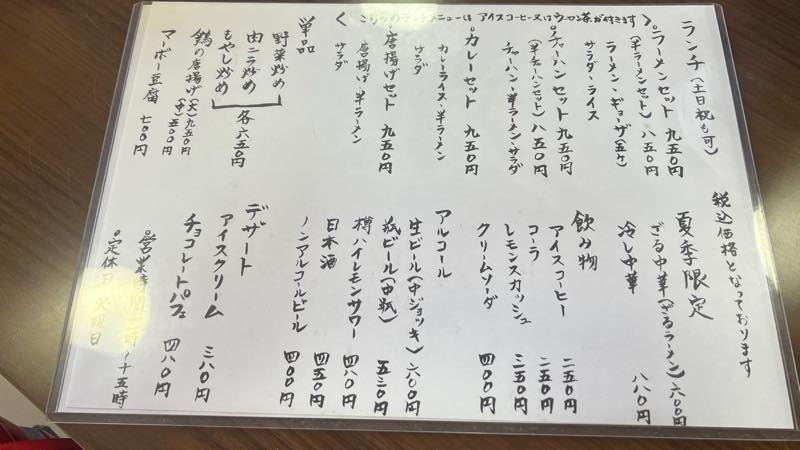 ランチ(土日祝も可)
ラーメンセット 九五〇円
(半ラーメンセット) 八五〇円
ラーメン・ギョーザ(五ケ)
サラダ・ライス
チャーハンセット 九五〇円
(半チャーハンセット) 八五〇円
チャーハン・半ラーメン・サラダ
カレーセット 九五〇円
カレーライス・半ラーメン
サラダ
唐揚げセット 九五〇円
唐揚げ・半ラーメン
サラダ
〈こちらのランチメニューは アイスコーヒー又はウーロン茶が付きます〉
単品
野菜炒め
肉ニラ炒め
もやし炒め
各 六五〇円
鶏の唐揚げ(大)九五〇円
(小)五〇〇円
マーボー豆腐 七〇〇円
税込価格となっております
夏季限定
ざる中華(ざるラーメン) 六〇〇円
冷し中華 八八〇円
飲み物
アイスコーヒー 二五〇円
コーラ 二五〇円
レモンスカッシュ 三五〇円
クリームソーダ 四〇〇円
アルコール
生ビール(中ジョッキ) 六〇〇円
瓶ビール(中瓶) 五五〇円
樽ハイレモンサワー 四八〇円
日本酒 四五〇円
ノンアルコールビール 四〇〇円
デザート
アイスクリーム 三八〇円
チョコレートパフェ 四八〇円
営業時間 〜十五時
定休日 火曜日